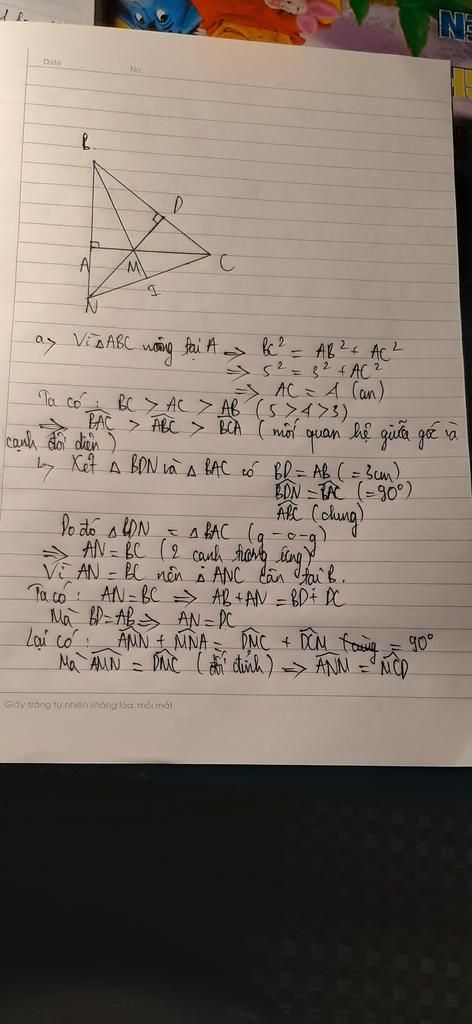 Date
No.
B
D
A
M
C
N
I
a, Vì △ABC vuông tại A => BC² = AB² + AC²
=> 5² = 3² + AC²
=> AC = 4 (cm)
Ta có : BC > AC > AB (5 > 4 > 3)
=> BAC > ABC > BCA (mối quan hệ giữa góc và
cạnh đối diện)
b, Xét △BDN và △BAC có BD = AB (= 3cm)
BDN = BAC (= 90°)
ABC (chung)
Do đó △BDN = △BAC (g - c - g)
=> AN = BC (2 cạnh tương ứng)
Vì AN = BC nên △ANC cân tại B.
Ta có : AN = BC => AB + AN = BD + DC
Mà BD = AB => AN = DC
Lại có : AMN + MNA = DMC + DCM = 90°
Mà AMN = DMC (đối đỉnh) => ANM = MCD
Giấy trắng tự nhiên không lóa, mỏi mắt